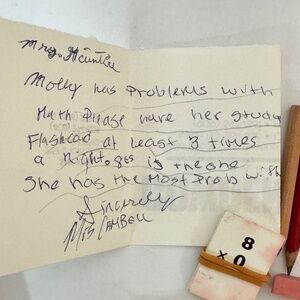 Mrs.
Molly has Problems with
Math Please have her study
Flashcad at least 3 times
a night. 8es is the one
She has the Most Prob with
Sincerely
Mis CAMBELL
8
x 0